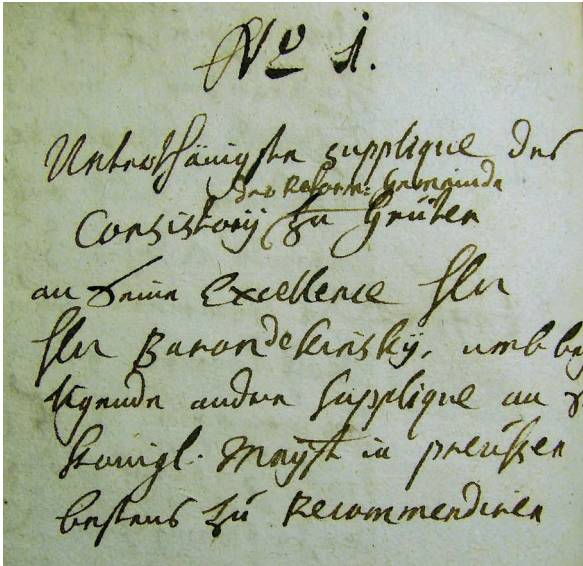 No 1.
Unterthänigste supplique des
der Reform: Gemeinde
Consistorij zu Grüten
an Seine Excellence Hln
Hln Baron de Kinsky, umb bey
ligende andere supplique an S
Königl. Mayst in preüssen
bestens zu Recommendiren